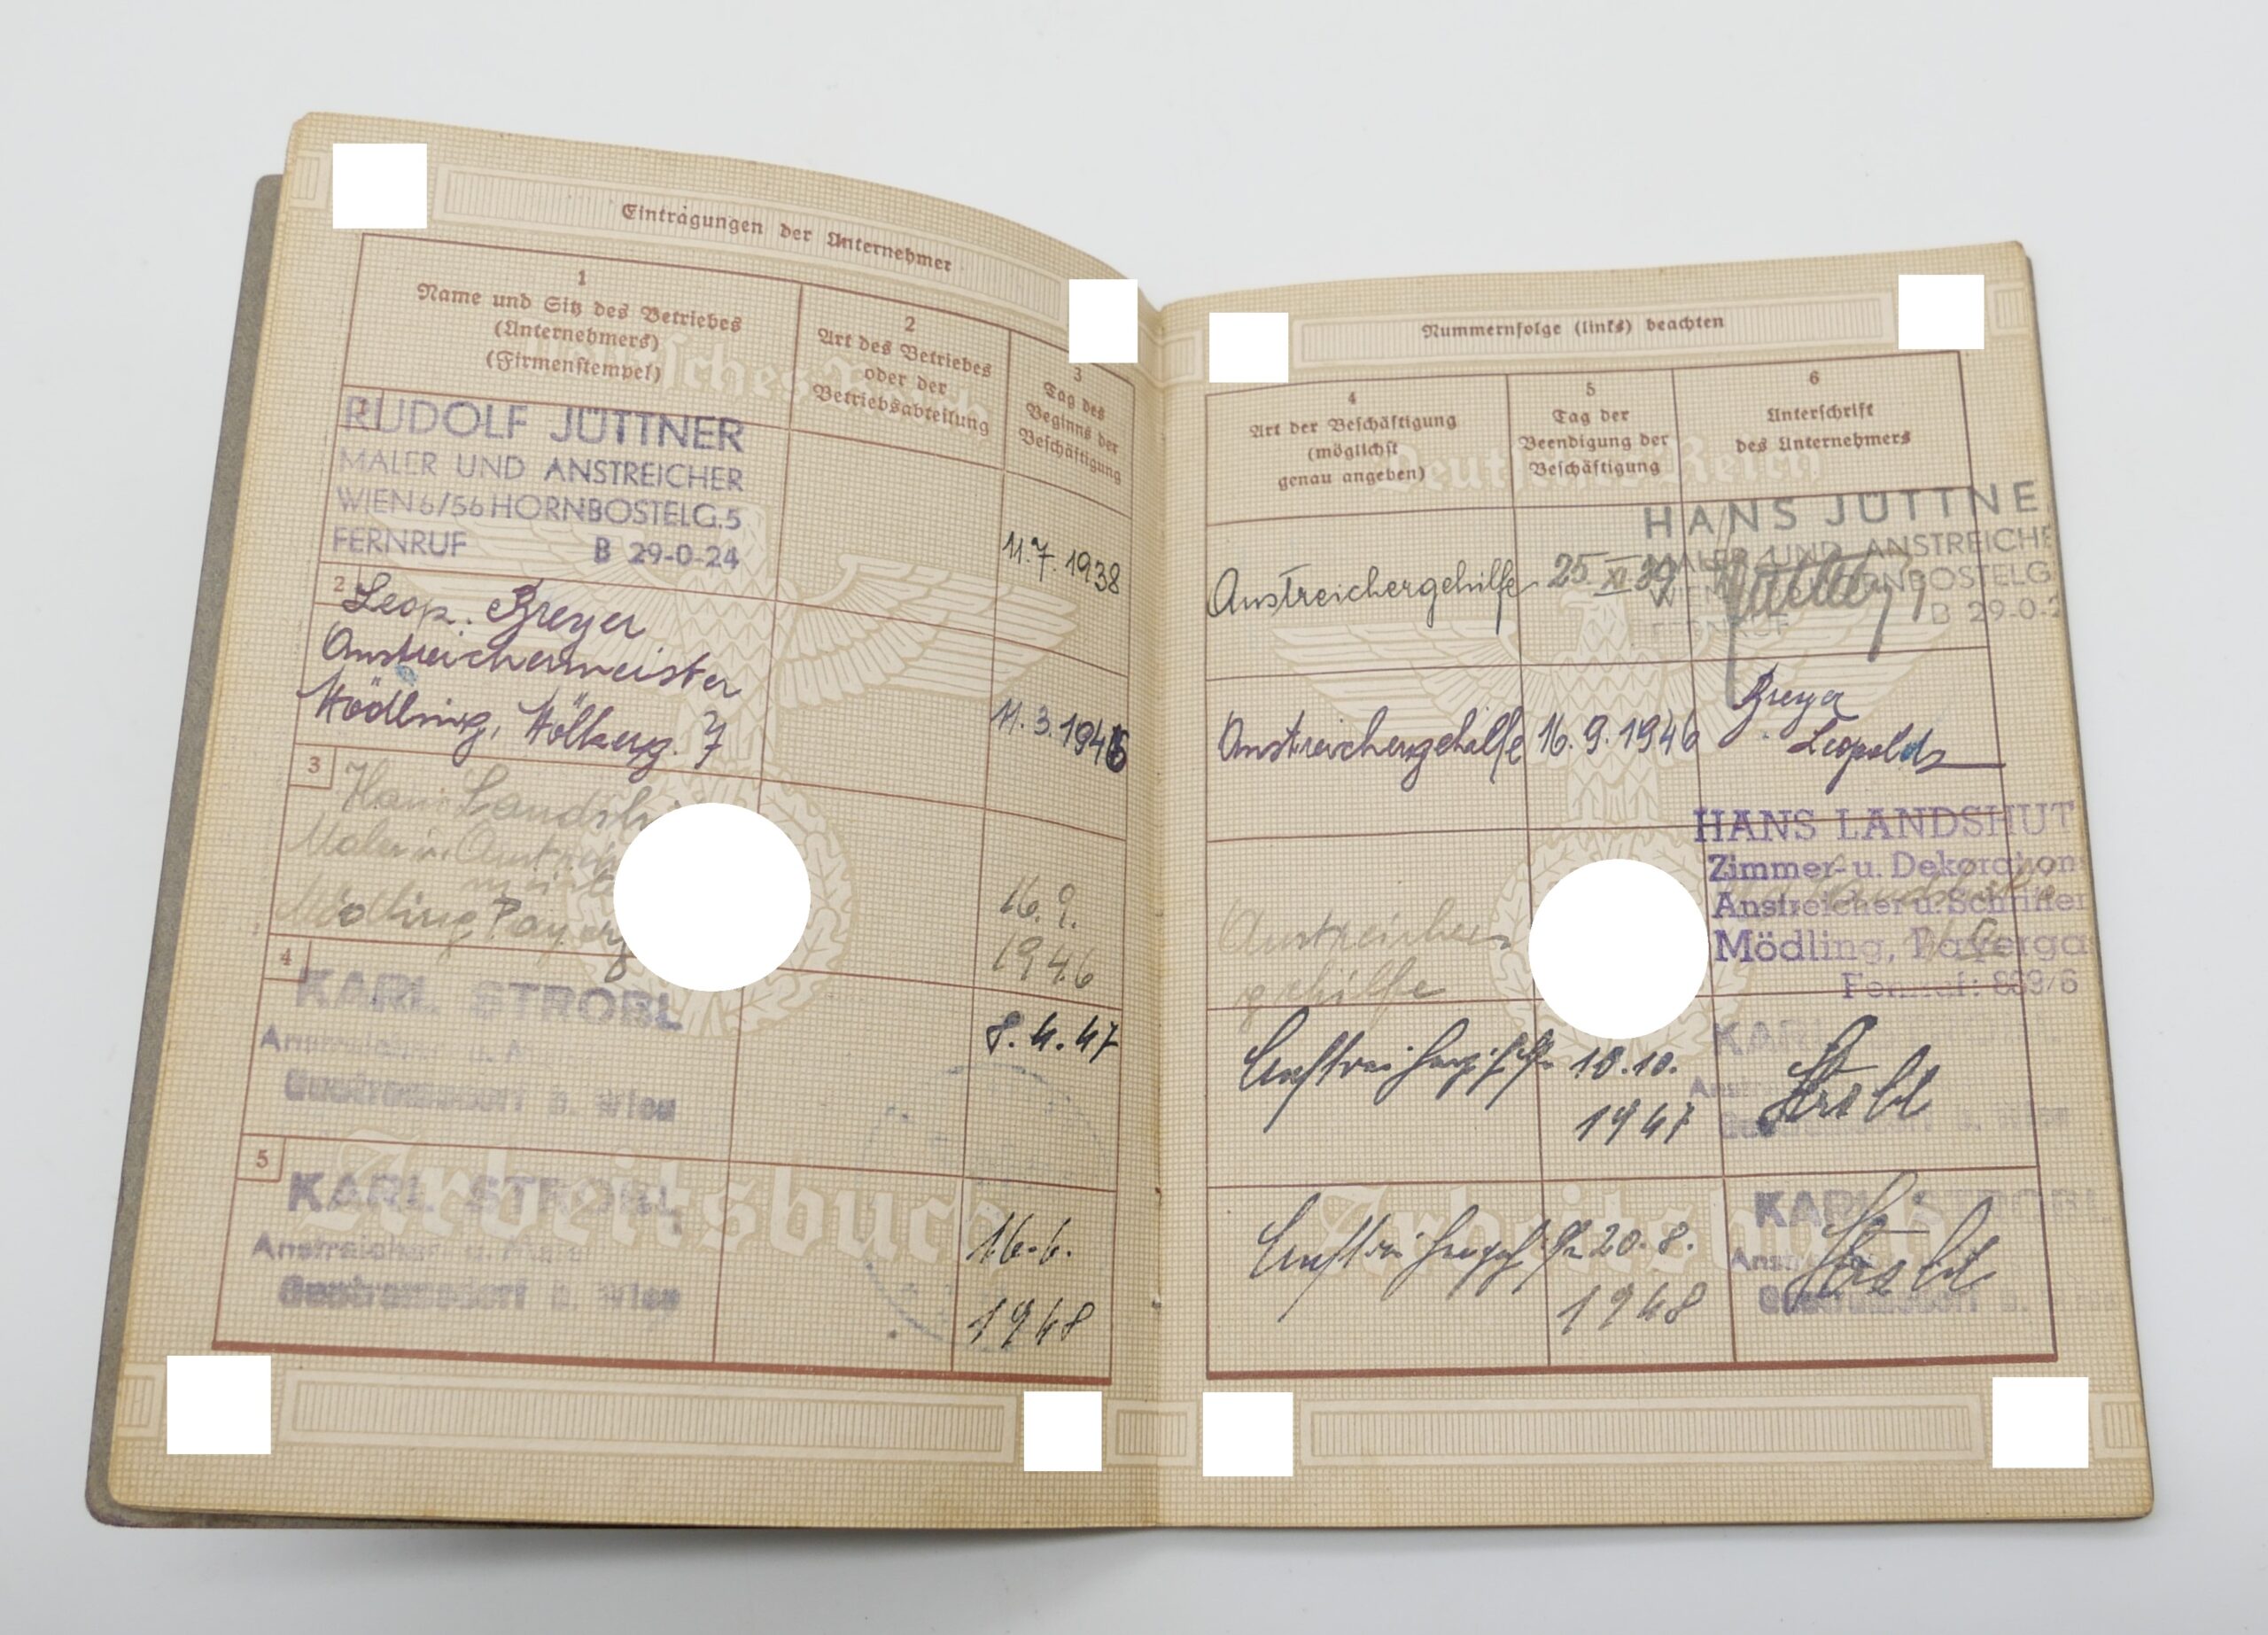 Eintragungen der Unternehmer
1
Name und Sitz des Betriebes
(Unternehmers)
(Firmenstempel)
2
Art des Betriebes
oder der
Betriebsabteilung
3
Tag des
Beginns der
Beschäftigung
1
RUDOLF JÜTTNER
MALER UND ANSTREICHER
WIEN 6/56 HORNBOSTELG. 5
FERNRUF B 29-0-24
11.7.1938
2
Leop. Breyer
Anstreichermeister
Mödling,
7
11.3.1946
3
Hans
Maler u.
Mödling
16.9.
1946
4
KARL STROBL
Anstreicher u.
Guntramsdorf b. Wien
8.4.47
5
KARL STROBL
Anstreicher u.
Guntramsdorf b. Wien
16.6.
1948
Deutsches Reich
Arbeitsbuch
Nummernfolge (links) beachten
4
Art der Beschäftigung
(möglichst
genau angeben)
5
Tag der
Beendigung der
Beschäftigung
6
Unterschrift
des Unternehmers
Anstreichergehilfe 25.XI.39
HANS JÜTTNE
MALER UND ANSTREICHE
WIEN HORNBOSTELG
FERNRUF B 29-0-2
Anstreichergehilfe 16.9.1946 Breyer
Leopold
Anstreicher
gehilfe
HANS LANDSHUT
Zimmer- u. Dekoration
Anstreicher u. Schrifte
Mödling, Payerga
Fernruf: 889/6
Anstreichergehilfe 10.10.
1947
KARL
Strobl
Anstreichergehilfe 20.8.
1948
KARL STROBL
Strobl
Guntramsdorf b. Wien
Deutsches Reich
Arbeitsbuch